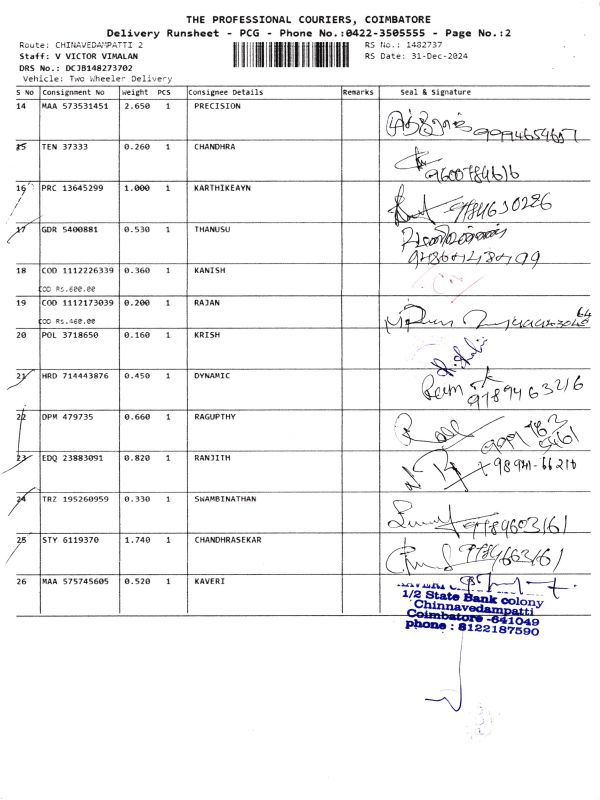 THE PROFESSIONAL COURIERS, COIMBATORE
Delivery Runsheet - PCG - Phone No.:0422-3505555 - Page No.:2
Route: CHINAVEDAMPATTI 2 RS No.: 1482737
Staff: V VICTOR VIMALAN RS Date: 31-Dec-2024
DRS No.: DCJB148273702
Vehicle: Two Wheeler Delivery
S No Consignment No Weight PCS Consignee Details Remarks Seal & Signature
14 MAA 573531451 2.650 1 PRECISION
9994654657
15 TEN 37333 0.260 1 CHANDHRA
9600784616
16 PRC 13645299 1.000 1 KARTHIKEAYN
9784630286
17 GDR 5400881 0.530 1 THANUSU
18 COD 1112226339 0.360 1 KANISH
COD RS.600.00
19 COD 1112173039 0.200 1 RAJAN
COD RS.460.00
20 POL 3718650 0.160 1 KRISH
21 HRD 714443876 0.450 1 DYNAMIC
9789463216
22 DPM 479735 0.660 1 RAGUPTHY
23 EDQ 23883091 0.820 1 RANJITH
24 TRZ 195260959 0.330 1 SWAMBINATHAN
9789603161
25 STY 6119370 1.740 1 CHANDHRASEKAR
26 MAA 575745605 0.520 1 KAVERI
1/2 State Bank colony
Chinnavedampatti
Coimbatore -641049
phone : 8122187590